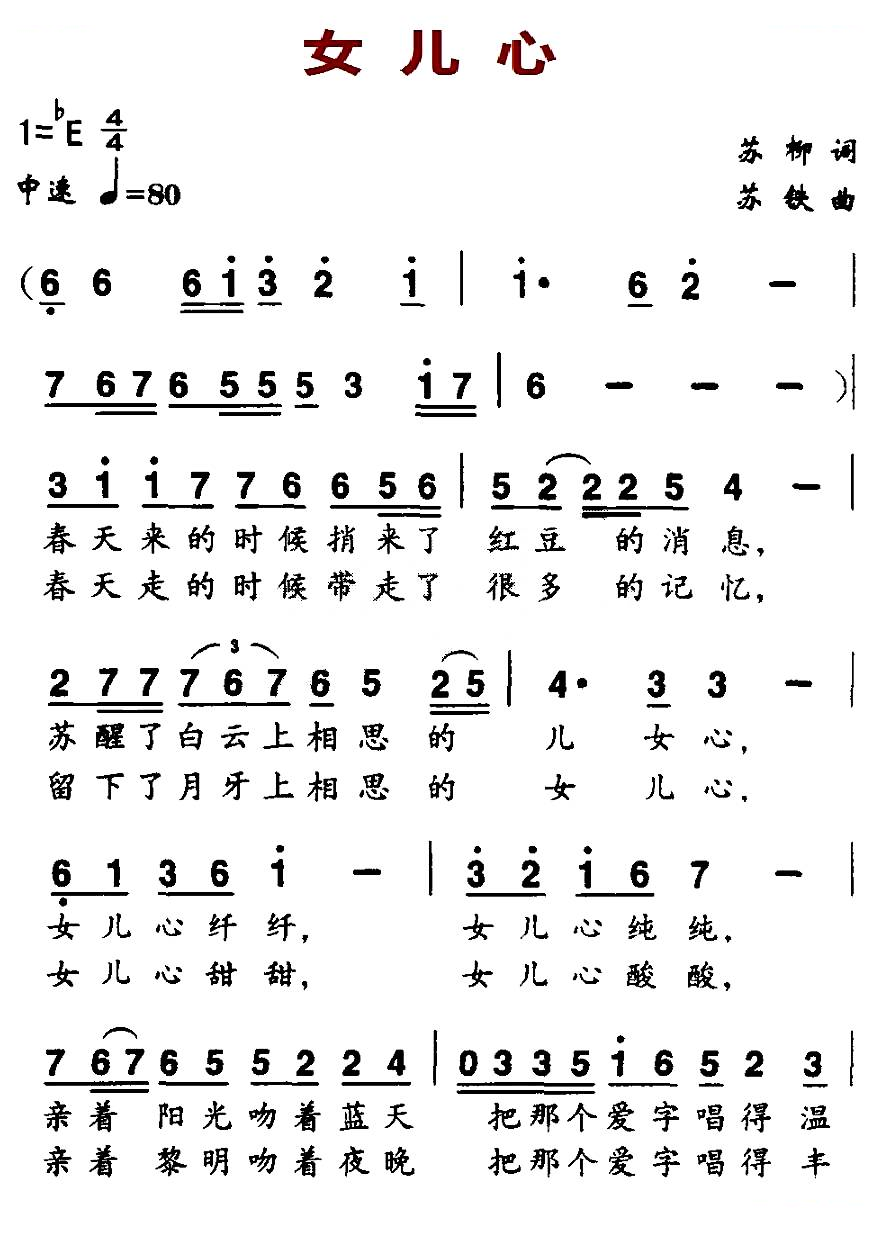 女儿心
1=♭E 4/4
苏柳词
中速 ♩=80
苏铁曲
(6̣ 6 6 1̇ 3̇ 2̇ 1̇ | 1̇· 6 2̇ – |
7 6 7 6 5 5 5 3 1̇ 7 | 6 – – – )|
3 1̇ 1̇ 7 7 6 6 5 6 | 5 2 2 2 5 4 – |
春天来的时候捎来了 红豆 的消息,
春天走的时候带走了 很多 的记忆,
2 7 7 7 6 7 6 5 2 5 | 4· 3 3 – |
苏醒了白云上相思的 儿 女心,
留下了月牙上相思的 女 儿心.
6̣ 1 3 6 1̇ – | 3̇ 2̇ 1̇ 6 7 – |
女儿心纤纤, 女儿心纯纯,
女儿心甜甜, 女儿心酸酸,
7 6 7 6 5 5 2 2 4 | 0 3 3 5 1̇ 6 5 2 3 |
亲着 阳光吻着蓝天 把那个爱字唱得温
亲着 黎明吻着夜晚 把那个爱字唱得丰